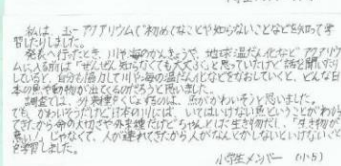 私は、ユーアクアリウムで初めてなことや知らないことなどを知って学
習したりしました。
発表へ行ったとき、川や海のかんきょうや、地球温だん化など アクアリウ
ムに入る前は「ぜんぜん知らなくても大丈夫。」と思っていたけど話を聞いたり
していると、自分も協力して川や海の温だん化などをなおしていくと、どんな日
本の魚や動物が出てくるのだろうと思いました。
調査では、外来種をくじょするのは、魚がかわいそうと思いました。
でも、かわいそうだけど日本の川には、いてはいけない魚ということがわかっ
てきたから命の大切さや外来種だけど「ちゃんとした生き物だ」「生き物が
悪い」じゃなくて、人が連れてきたから人がなんとかしないといけないこと
を学習しました。
小学生メンバー(小5)